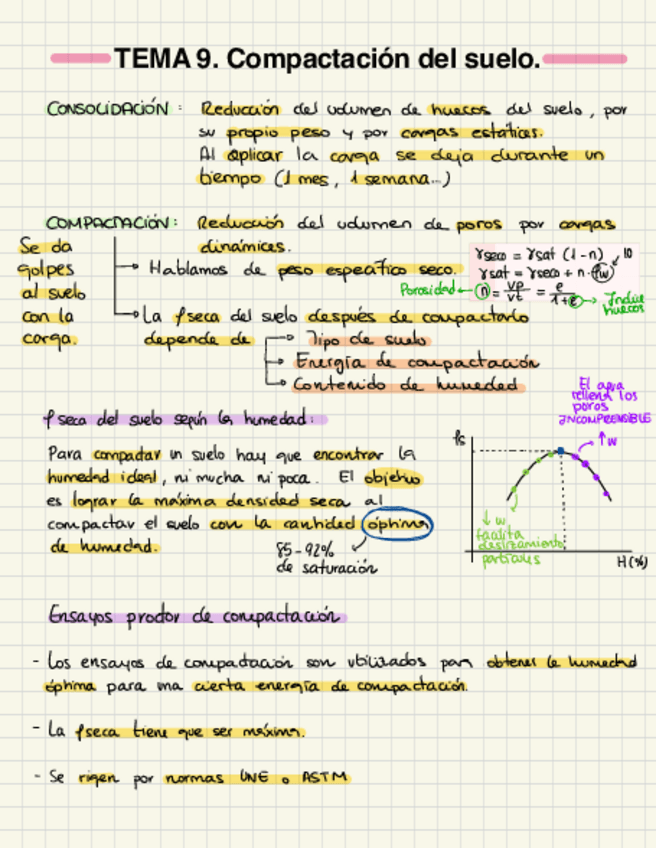 TEMA 9. Compactación del suelo.
CONSOLIDACIÓN: Reducción del volumen de huecos del suelo, por
su propio peso y por cargas estáticas.
Al aplicar la carga se deja durante un
tiempo (1 mes, 1 semana...)
COMPACTACIÓN: Reducción del volumen de poros por cargas
dinámicas.
Se da
golpes
al suelo
con la
carga.
Hablamos de peso específico seco.
γseco = γsat (1-n)
γsat = γseco + n·γw 10
Porosidad n = Vp/Vt = e/1+e Índice
huecos
La ρseca del suelo después de compactarlo
depende de
Tipo de suelo
Energía de compactación
Contenido de humedad
ρseca del suelo según la humedad:
Para compactar un suelo hay que encontrar la
humedad ideal, ni mucha ni poca. El objetivo
es lograr la máxima densidad seca al
compactar el suelo con la cantidad óptima
de humedad.
85-92%
de saturación
El agua
rellena los
poros
INCOMPRENSIBLE
↑w
ρs
↓w
facilita
deslizamiento
partículas
H(%)
Ensayos proctor de compactación
- Los ensayos de compactación son utilizados para obtener la humedad
óptima para una cierta energía de compactación.
- La ρseca tiene que ser máxima.
- Se rigen por normas UNE o ASTM